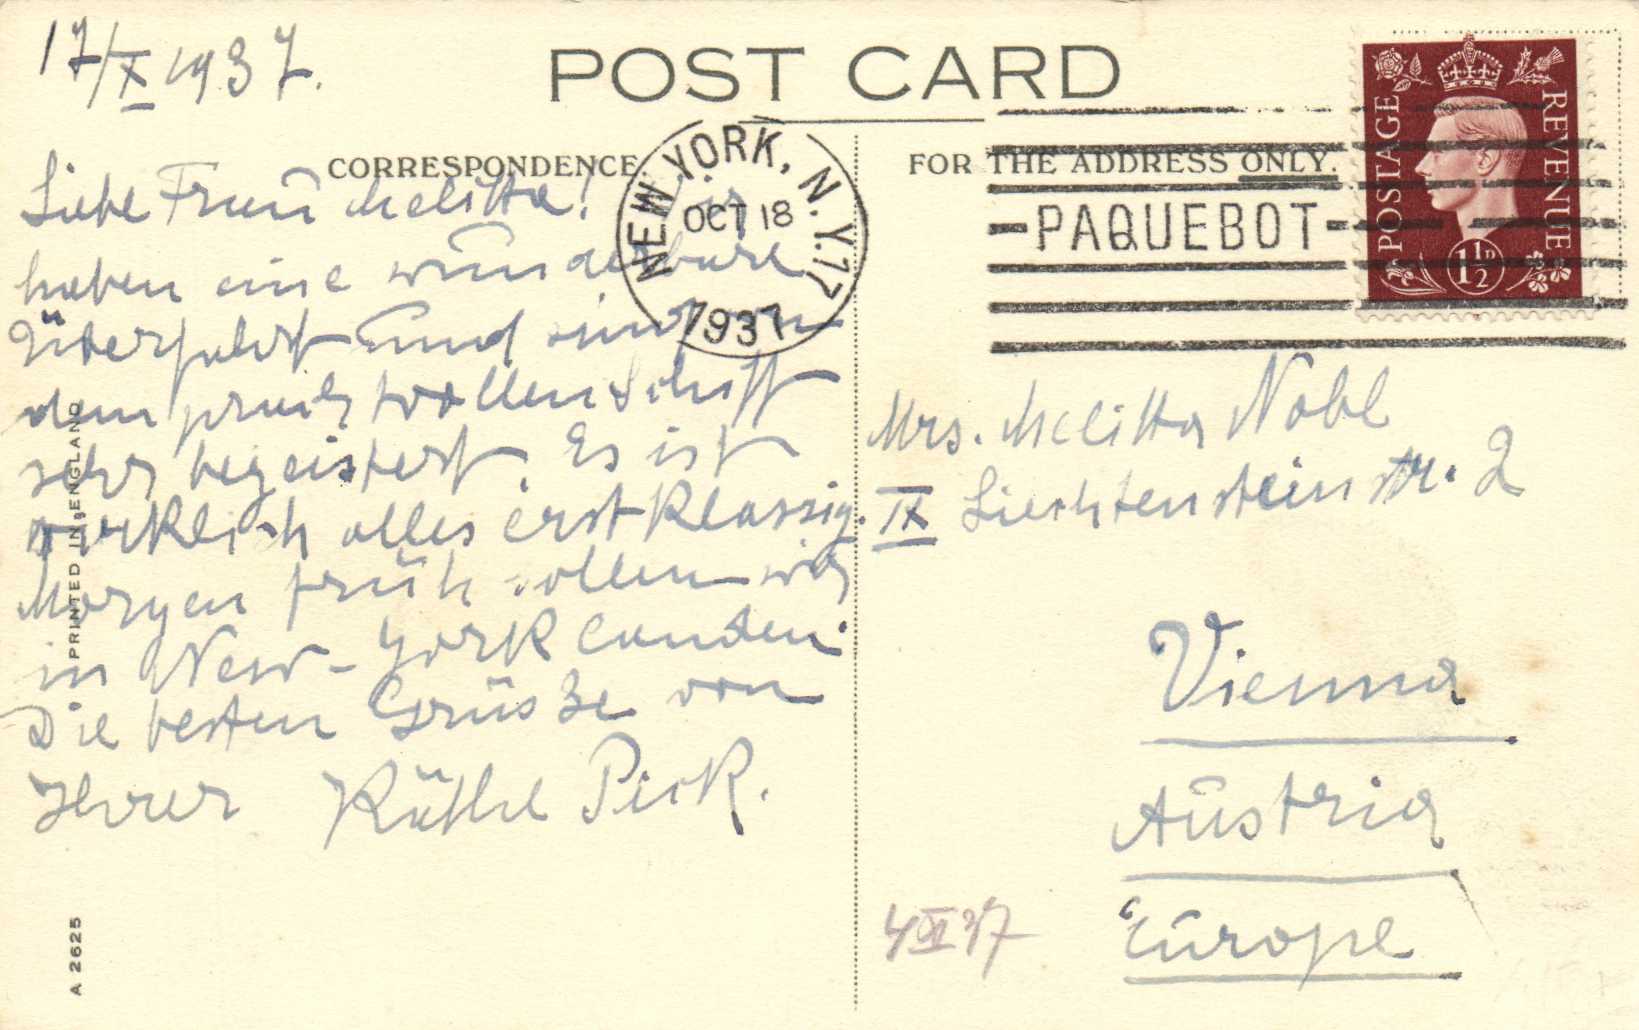 17/X 1937.
POST CARD
CORRESPONDENCE
FOR THE ADDRESS ONLY.
NEW YORK, N.Y. 17
OCT 18
1937
PAQUEBOT
POSTAGE
REVENUE
1½D
Liebe Frau Melitta! Wir
haben eine wunderbare
Überfahrt und sind von
dem prachtvollen Schiff
sehr begeistert. Es ist
wirklich alles erstklassig.
Morgen früh sollen wir
in New-York landen.
Die besten Grüsse von
Ihrer Käthe Pick.
Mrs. Melitta Nobl
IX Liechtensteinstr. 2
Vienna
Austria
Europe
4 XI 37
PRINTED IN ENGLAND
A 2625